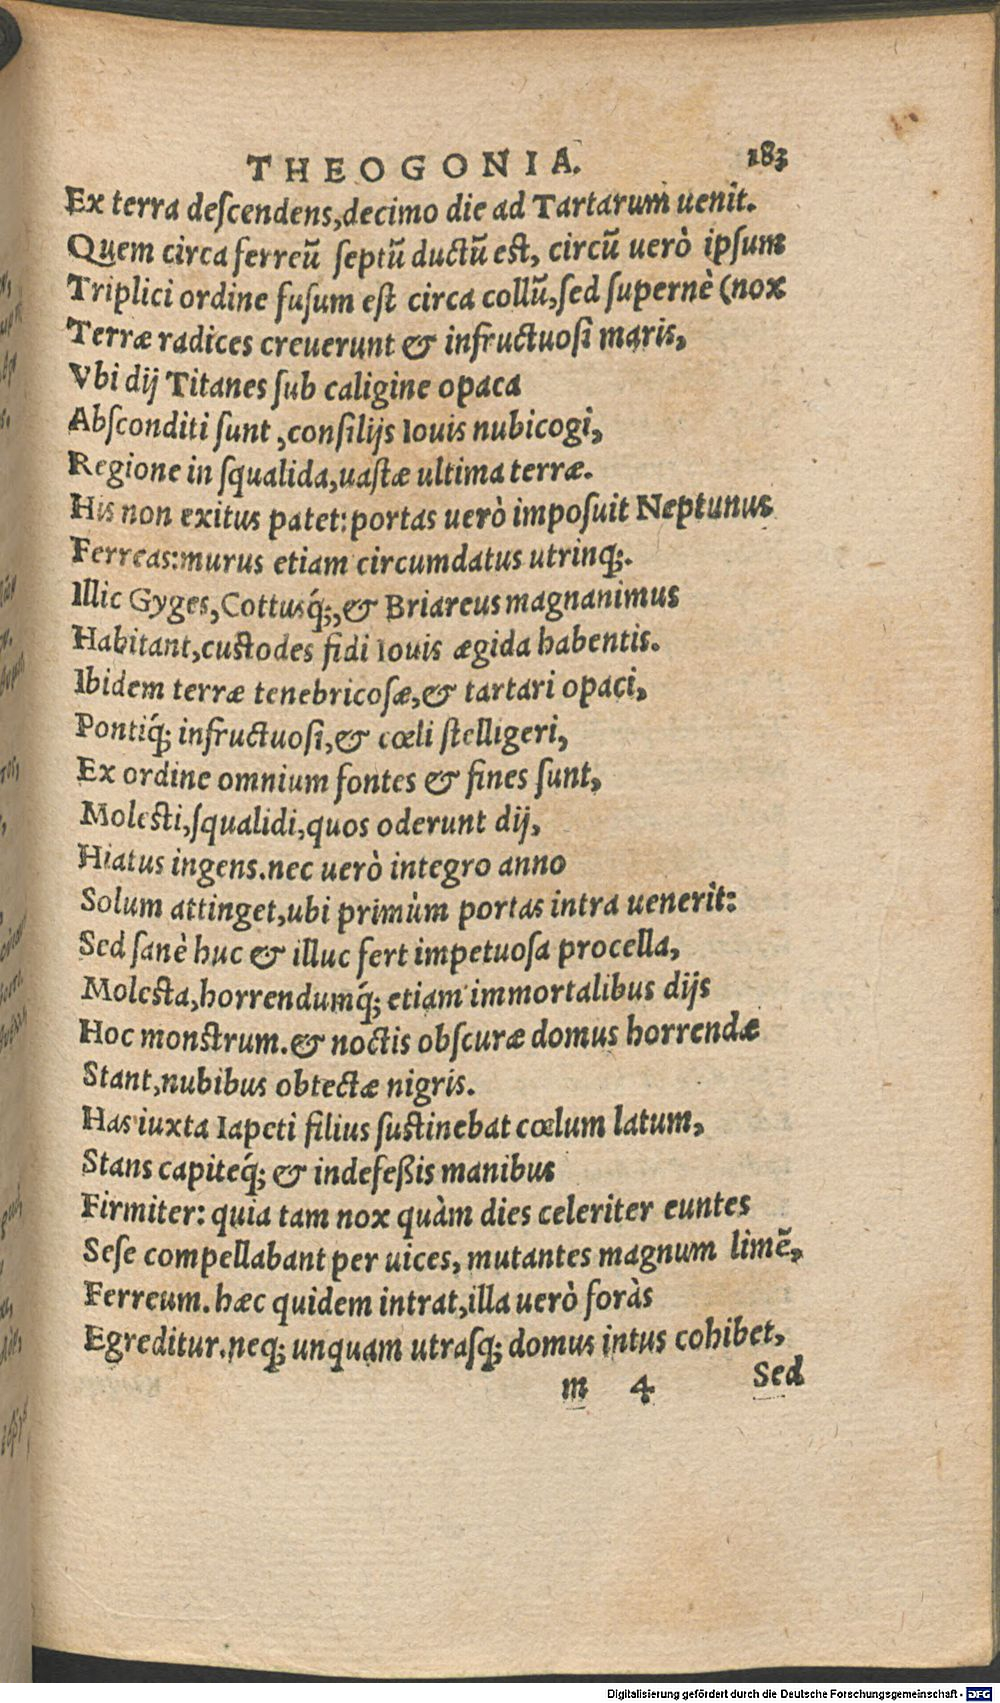 THEOGONIA. 183
Ex terra deſcendens,decimo die ad Tartarum uenit.
Quem circa ferreũ ſeptũ ductũ est, circũ uerò ipſum
Triplici ordine fuſum eſt circa collũ,ſed ſupernè (nox
Terræ radices creuerunt & infructuoſi maris,
Vbi dij Titanes ſub caligine opaca
Abſconditi ſunt ,conſilijs Iouis nubicogi,
Regione in ſqualida,uaſtæ ultima terræ.
His non exitus patet:portas uerò impoſuit Neptunus
Ferreas:murus etiam circumdatus utrinq;.
Illic Gyges,Cottusq́;,& Briareus magnanimus
Habitant,custodes fidi Iouis ægida habentis.
Ibidem terræ tenebricoſæ,& tartari opaci,
Pontiq́; infructuoſi,& cœli ſtelligeri,
Ex ordine omnium fontes & fines ſunt,
Molesti,ſqualidi,quos oderunt dij,
Hiatus ingens.nec uerò integro anno
Solum attinget,ubi primùm portas intra uenerit:
Sed ſanè huc & illuc fert impetuoſa procella,
Molesta,horrendumq́; etiam immortalibus dijs
Hoc monstrum.& noctis obſcuræ domus horrendæ
Stant,nubibus obtectæ nigris.
Has iuxta Iapeti filius ſustinebat cœlum latum,
Stans capiteq́; & indefeßis manibus
Firmiter: quia tam nox quàm dies celeriter euntes
Seſe compellabant per uices, mutantes magnum limẽ,
Ferreum.hæc quidem intrat,illa uerò foràs
Egreditur.neq; unquam utraſq; domus intus cohibet,
m 4 Sed
Digitalisierung gefördert durch die Deutsche Forschungsgemeinschaft - DFG